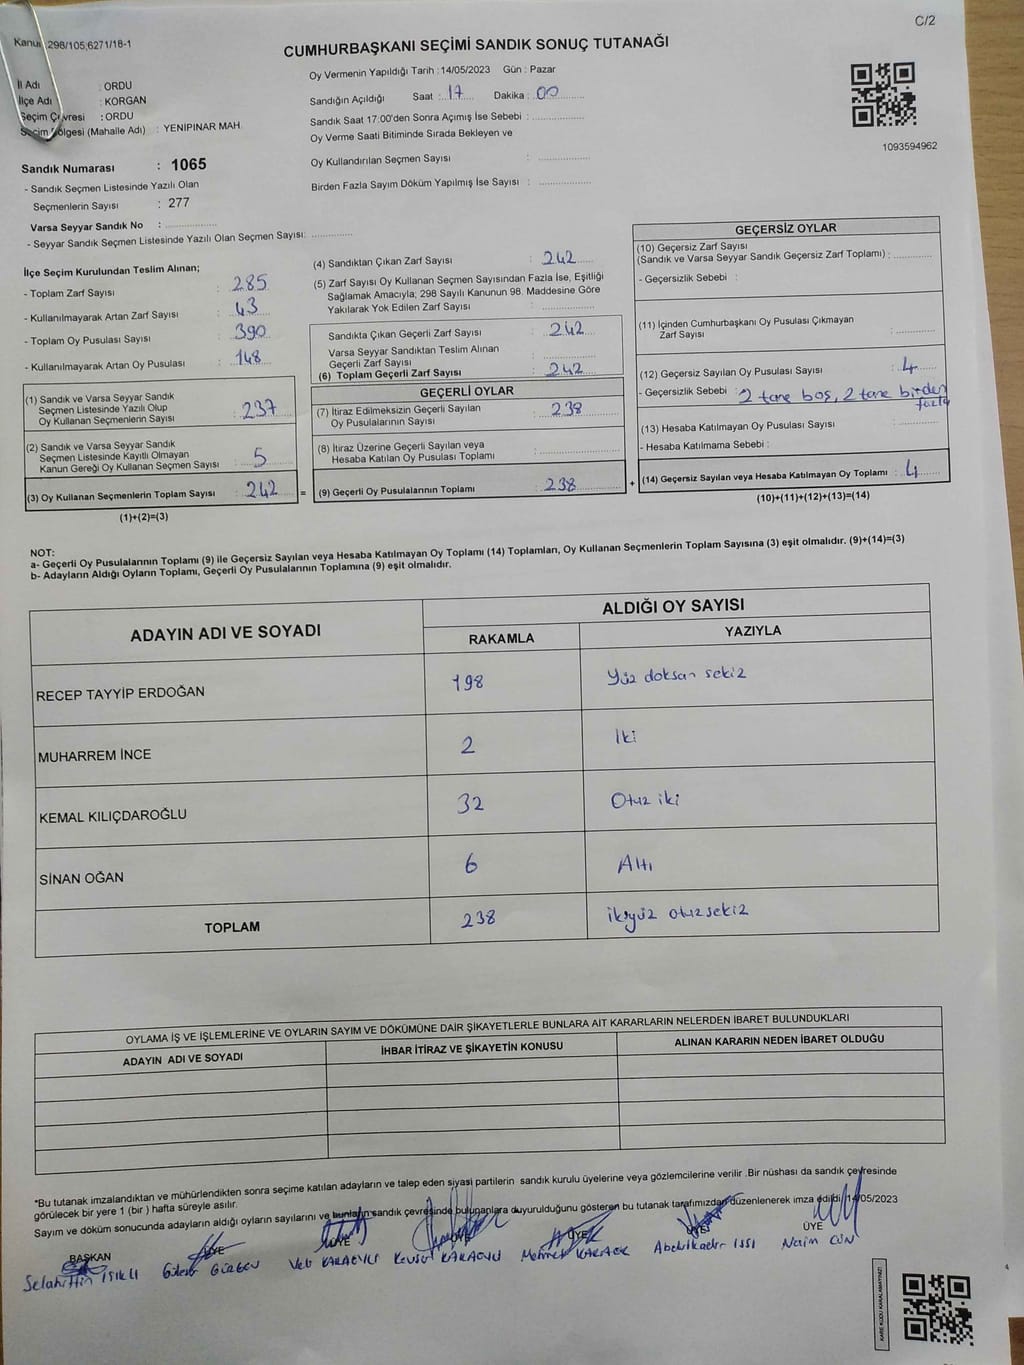 C/2
Kanun 298/105;6271/18-1
CUMHURBAŞKANI SEÇİMİ SANDIK SONUÇ TUTANAĞI
İl Adı : ORDU
İlçe Adı : KORGAN
Seçim Çevresi : ORDU
Seçim Bölgesi (Mahalle Adı) : YENİPINAR MAH.
Sandık Numarası : 1065
- Sandık Seçmen Listesinde Yazılı Olan
Seçmenlerin Sayısı : 277
Varsa Seyyar Sandık No :
- Seyyar Sandık Seçmen Listesinde Yazılı Olan Seçmen Sayısı:
Oy Vermenin Yapıldığı Tarih :14/05/2023 Gün : Pazar
Sandığın Açıldığı Saat : 17 Dakika : 00
Sandık Saat 17:00'den Sonra Açımış İse Sebebi :
Oy Verme Saati Bitiminde Sırada Bekleyen ve
Oy Kullandırılan Seçmen Sayısı :
Birden Fazla Sayım Döküm Yapılmış İse Sayısı :
1093594962
İlçe Seçim Kurulundan Teslim Alınan;
- Toplam Zarf Sayısı : 285
- Kullanılmayarak Artan Zarf Sayısı : 43
- Toplam Oy Pusulası Sayısı : 390
- Kullanılmayarak Artan Oy Pusulası : 148
(1) Sandık ve Varsa Seyyar Sandık
Seçmen Listesinde Yazılı Olup
Oy Kullanan Seçmenlerin Sayısı : 237
(2) Sandık ve Varsa Seyyar Sandık
Seçmen Listesinde Kayıtlı Olmayan
Kanun Gereği Oy Kullanan Seçmen Sayısı : 5
(3) Oy Kullanan Seçmenlerin Toplam Sayısı : 242 =
(1)+(2)=(3)
(4) Sandıktan Çıkan Zarf Sayısı : 242
(5) Zarf Sayısı Oy Kullanan Seçmen Sayısından Fazla İse, Eşitliği
Sağlamak Amacıyla; 298 Sayılı Kanunun 98. Maddesine Göre
Yakılarak Yok Edilen Zarf Sayısı :
Sandıkta Çıkan Geçerli Zarf Sayısı : 242
Varsa Seyyar Sandıktan Teslim Alınan
Geçerli Zarf Sayısı :
(6) Toplam Geçerli Zarf Sayısı : 242
GEÇERLİ OYLAR
(7) İtiraz Edilmeksizin Geçerli Sayılan
Oy Pusulalarının Sayısı : 238
(8) İtiraz Üzerine Geçerli Sayılan veya
Hesaba Katılan Oy Pusulası Toplamı :
(9) Geçerli Oy Pusulalarının Toplamı : 238 +
GEÇERSİZ OYLAR
(10) Geçersiz Zarf Sayısı
(Sandık ve Varsa Seyyar Sandık Geçersiz Zarf Toplamı) :
- Geçersizlik Sebebi :
(11) İçinden Cumhurbaşkanı Oy Pusulası Çıkmayan
Zarf Sayısı :
(12) Geçersiz Sayılan Oy Pusulası Sayısı : 4
- Geçersizlik Sebebi : 2 tane boş, 2 tane birden
fazla
(13) Hesaba Katılmayan Oy Pusulası Sayısı :
- Hesaba Katılmama Sebebi :
(14) Geçersiz Sayılan veya Hesaba Katılmayan Oy Toplamı : 4
(10)+(11)+(12)+(13)=(14)
NOT:
a- Geçerli Oy Pusulalarının Toplamı (9) ile Geçersiz Sayılan veya Hesaba Katılmayan Oy Toplamı (14) Toplamları, Oy Kullanan Seçmenlerin Toplam Sayısına (3) eşit olmalıdır. (9)+(14)=(3)
b- Adayların Aldığı Oyların Toplamı, Geçerli Oy Pusulalarının Toplamına (9) eşit olmalıdır.
ADAYIN ADI VE SOYADI
ALDIĞI OY SAYISI
RAKAMLA YAZIYLA
RECEP TAYYİP ERDOĞAN 198 Yüz doksan sekiz
MUHARREM İNCE 2 İki
KEMAL KILIÇDAROĞLU 32 Otuz iki
SİNAN OĞAN 6 Altı
TOPLAM 238 ikiyüz otuzsekiz
OYLAMA İŞ VE İŞLEMLERİNE VE OYLARIN SAYIM VE DÖKÜMÜNE DAİR ŞİKAYETLERLE BUNLARA AİT KARARLARIN NELERDEN İBARET BULUNDUKLARI
ADAYIN ADI VE SOYADI İHBAR İTİRAZ VE ŞİKAYETİN KONUSU ALINAN KARARIN NEDEN İBARET OLDUĞU
*Bu tutanak imzalandıktan ve mühürlendikten sonra seçime katılan adayların ve talep eden siyasi partilerin sandık kurulu üyelerine veya gözlemcilerine verilir .Bir nüshası da sandık çevresinde
görülecek bir yere 1 (bir ) hafta süreyle asılır.
Sayım ve döküm sonucunda adayların aldığı oyların sayılarını ve bunların sandık çevresinde bulunanlara duyurulduğunu gösteren bu tutanak tarafımızdan düzenlenerek imza edildi. 14/05/2023
BAŞKAN ÜYE ÜYE ÜYE ÜYE ÜYE
Selahittin IŞIKLI GÜRGEN Veli KARAEVLİ Kevser KARAEVLİ Mehmet Abdulkadir ISSI Naim GÜN
KARE KODU KARALAMAYINIZ!